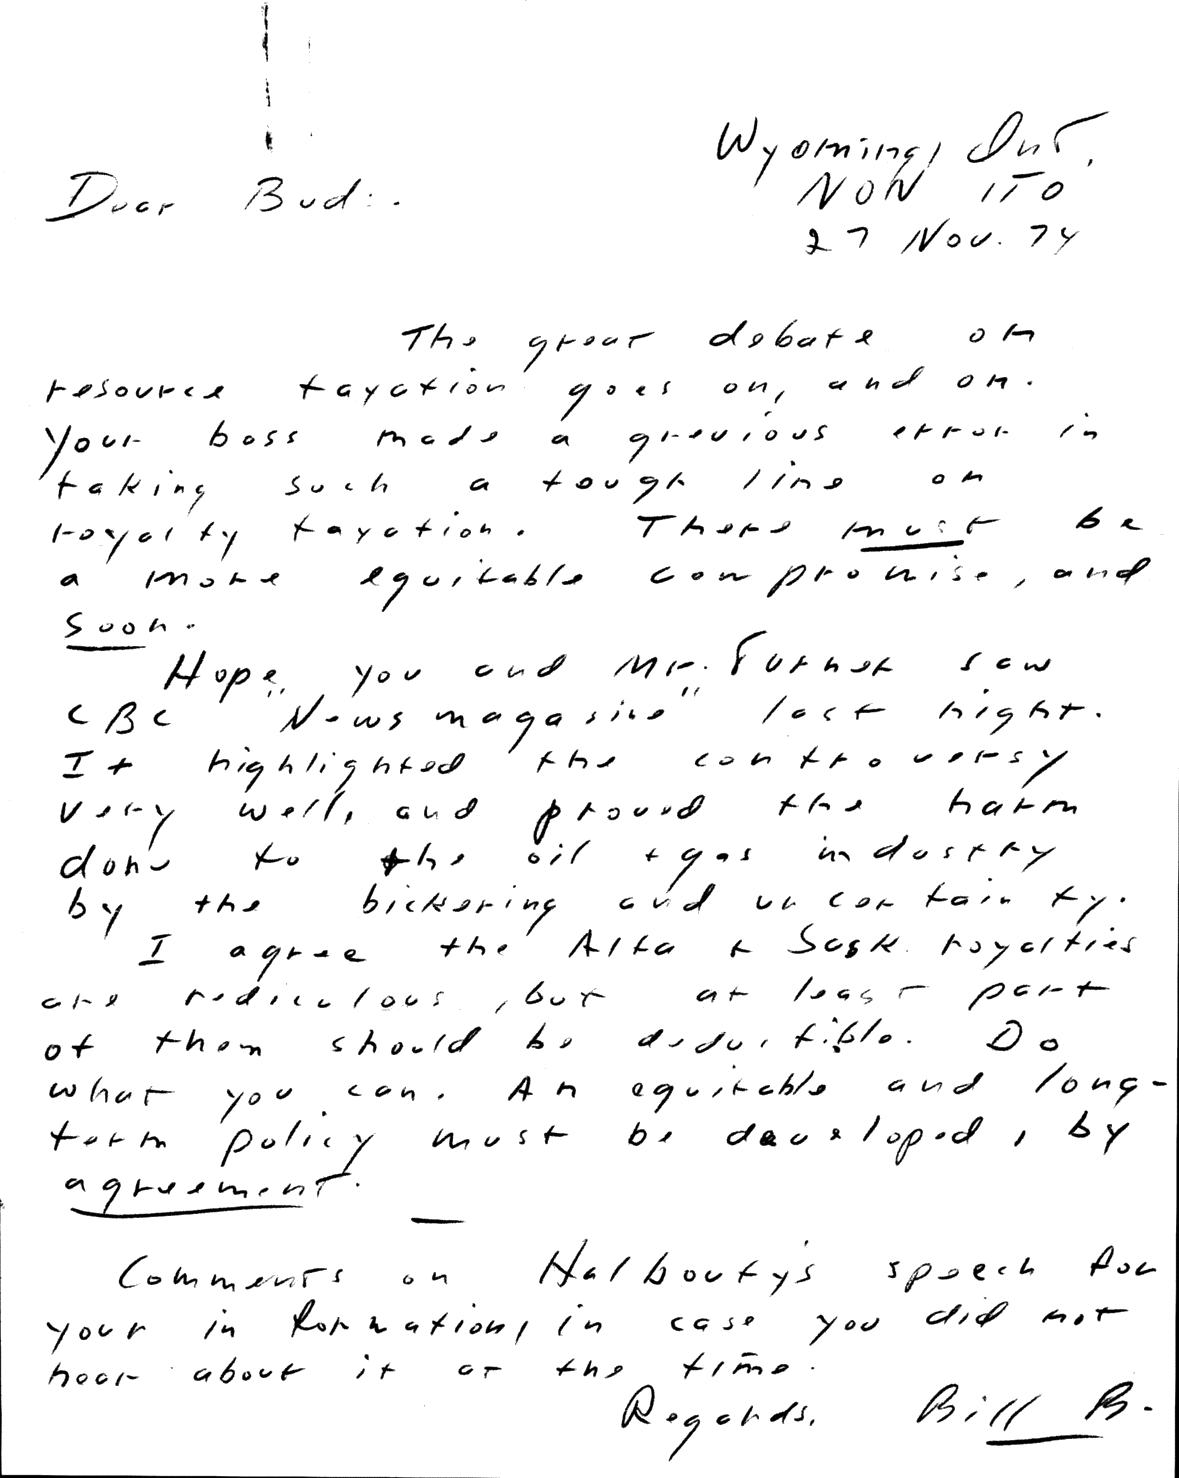 Wyoming, Ont.
N0N 1T0
27 Nov. 74
Dear Bud:.
The great debate on
resource taxation goes on, and on.
Your boss made a grevious error in
taking such a tough line on
royalty taxation. There must be
a more equitable compromise, and
soon.
Hope you and Mr. Turner saw
CBC "News magasine" last night.
It highlighted the controversy
very well, and proved the harm
done to the oil + gas industry
by the bickering and uncertainty.
I agree the Alta + Sask. royalties
are rediculous, but at least part
of them should be deductible. Do
what you can. An equitable and long-
term policy must be developed, by
agreement.
Comments on Halbouty's speech for
your information, in case you did not
hear about it at the time.
Regards, Bill B.